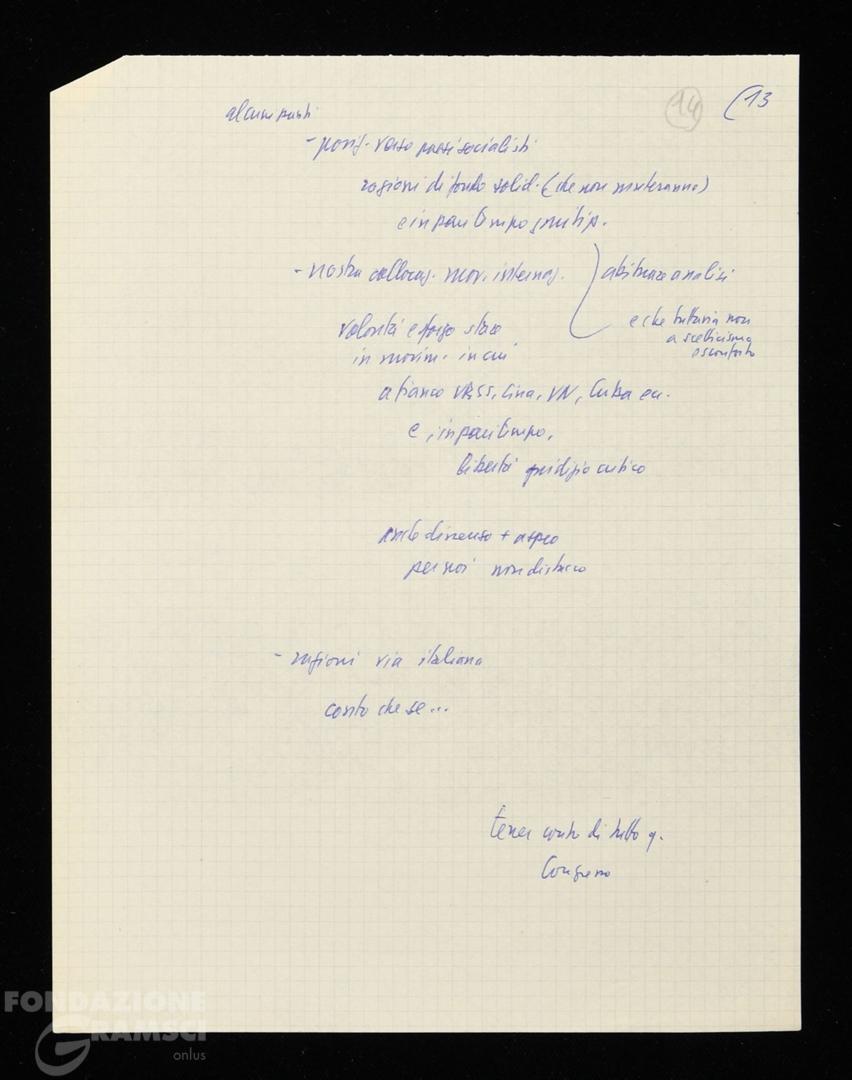 14 (13
alcuni punti
- posiz. verso paesi socialisti
ragioni di fondo solid. (che non muteranno)
e in pari tempo
- nostra collocaz. mov. internaz.
abituare analisi
e che tuttavia non
a scetticismo
o sconforto
volontà e forza stare
in movim. in cui
a fianco URSS, Cina, VN, Cuba ecc.
e, in pari tempo,
libertà giudizio critico
anche dissenso + aspro
per noi non distacco
- ragioni via italiana
conto che se...
tener conto di tutto q.
Congresso
FONDAZIONE
GRAMSCI
onlus